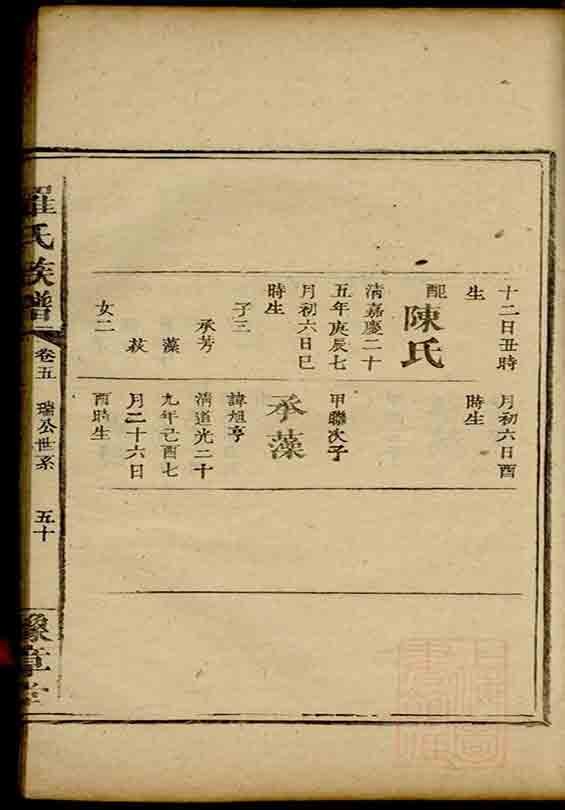 十二日丑時
生
配
陳氏
清嘉慶二十
五年庚辰七
月初六日巳
時生
子三
承芳
藻
女二
月初六日酉
時生
甲聯次子
承藻
諱旭亭
清道光二十
九年己酉七
月二十六日
酉時生
羅氏族譜
卷五
瑞公世系
五十
豫章堂